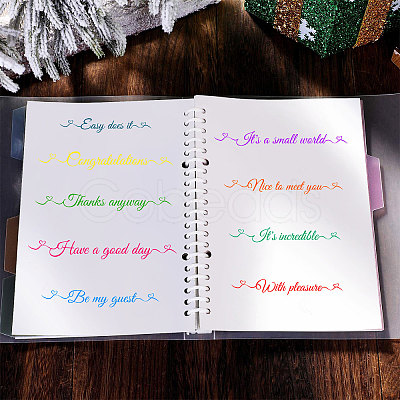 Easy does it
Congratulations
Thanks anyway
Have a good day
Be my guest
It's a small world
Nice to meet you
It's incredible
With pleasure